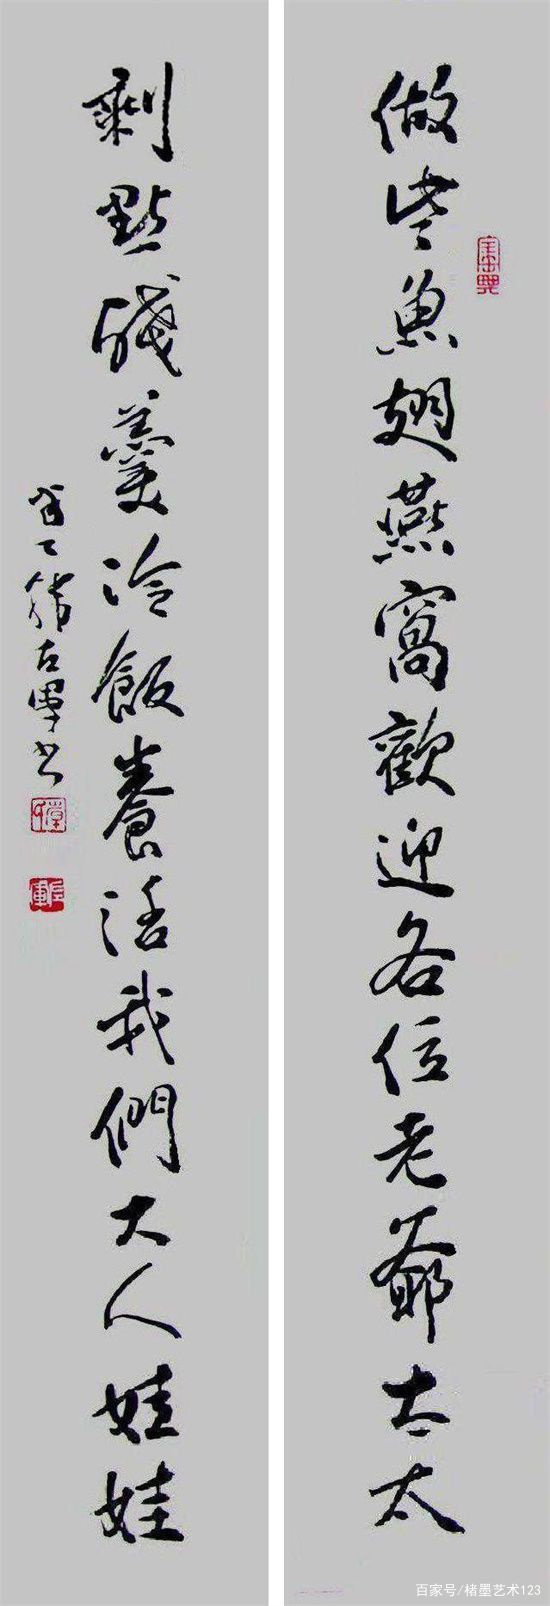 做些魚翅燕窩歡迎各位老爺太太
剩點殘羹冷飯養活我們大人娃娃
百家号/楮墨艺术123